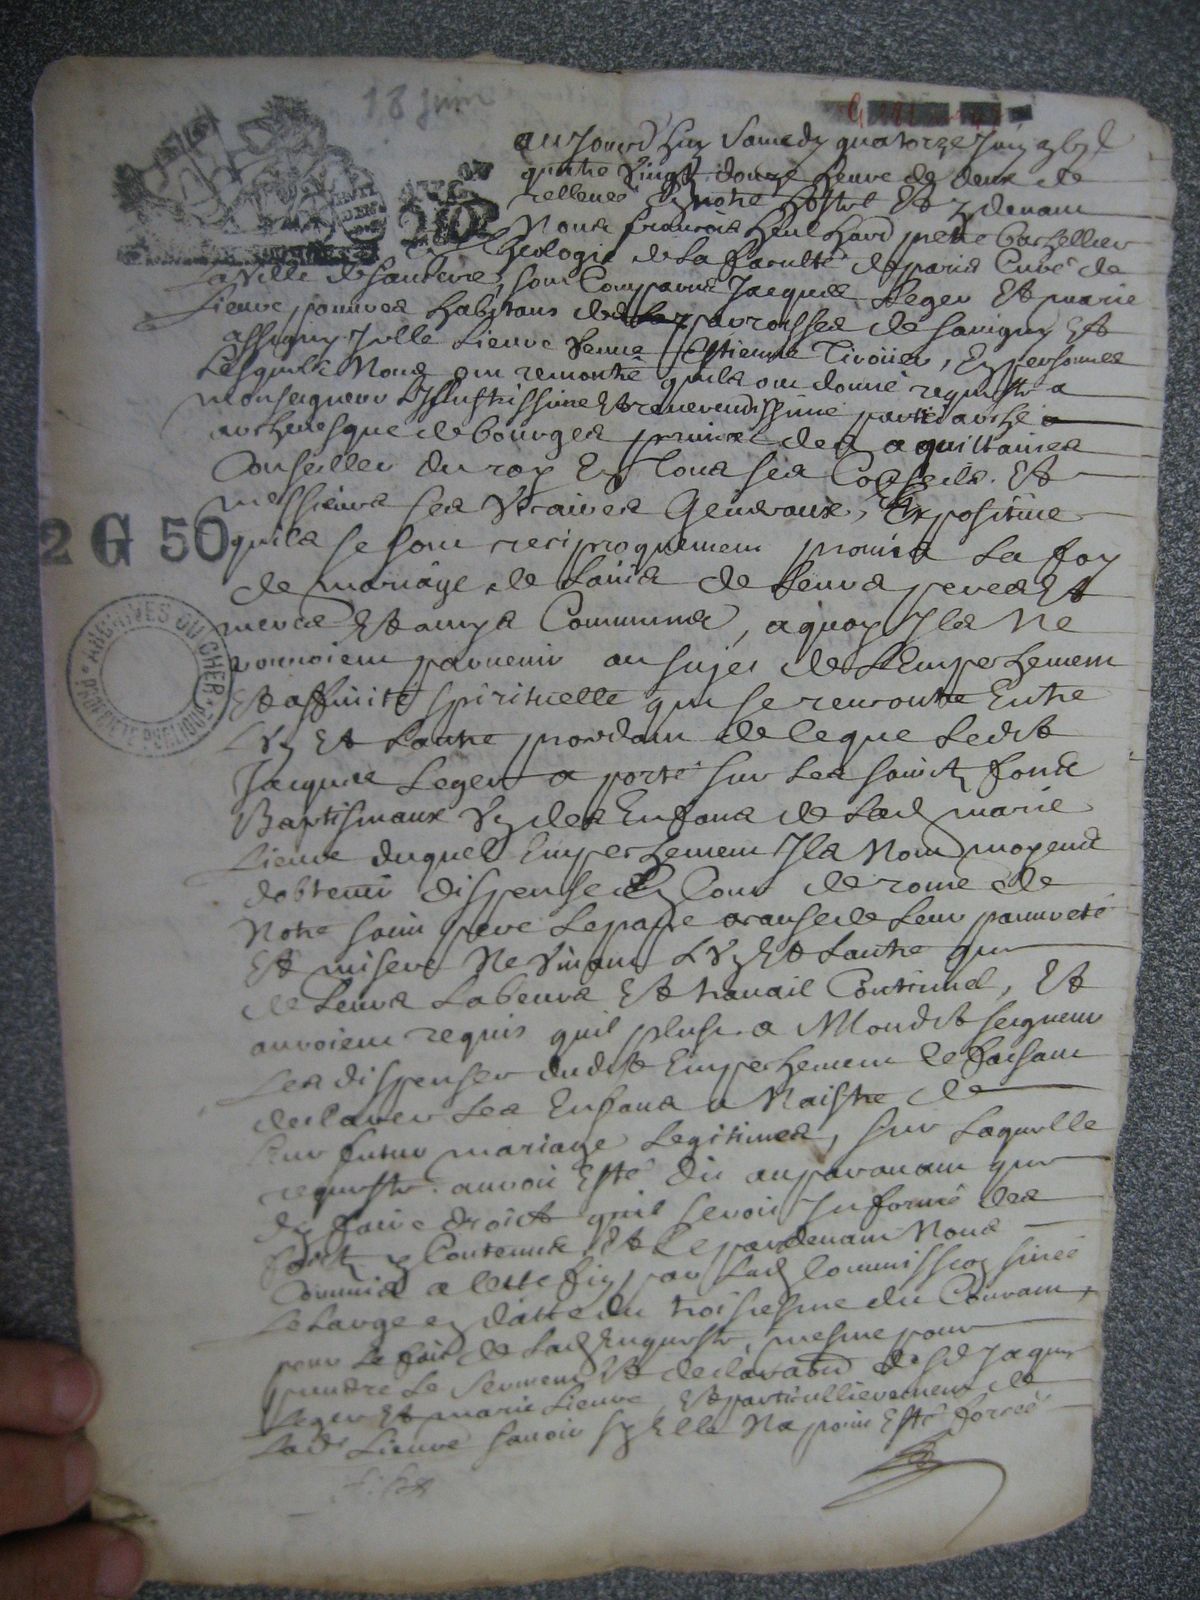 18 Juin
aujourd'huy Samedy quatorze Juin
quatre vingt douze heure de deux de
rellevée en notre hostel Et pardevant
Nous françois heulhard pretre bachellier
en Theologie de la faculté de paris Curé de
la Ville de Sancerre, sont Comparus Jacques Leger Et marie
Lieuve pauvres habitans des parroisses de Savigny Et
assigny Icelle Lieuve veuve Estienne Tiroüer, En personnes
Lesquels Nous ont remontré quils ont donné requeste a
Monseigneur Illustrissime Et reverendissime patriarche
archevesque de bourges primat des aquittaines
Conseiller du roy En tous ses Conseils Et
messieurs ses vicaires Generaux, Expositive
2 G 50
quils se sont reciproquement promis La foy
de mariage de Lavis de Leurs peres Et
meres Et amys Communs, a quoy Ils Ne
pourroient parvenir au sujet de L'Empeschement
Et affinité spirituelle qui se rencontre Entre
L'un Et L'autre procedant de ce que Ledit
Jacques Leger a porté sur Les saincts fonds
Baptismaux un des Enfans de Lad marie
Lieuve duquel Empeschement Ils Nont moyens
dobtenir dispense En Cour de rome de
Notre saint pere Le pape a cause de Leur pauvreté
Et misere Ne vivant L'un Et L'autre que
de Leurs Labeurs Et travail Continuel, Et
auroient requis quil plust a Mondit seigneur
Les dispenser dudit Empeschement Ce faisant
declarer Les Enfans a Naistre de
Leur futur mariage Legitimes, sur Laquelle
requeste auroit Esté dit auparavant que
dy faire droict quil seroit Informé des
faicts y Contenus Et Ce pardevant Nous
Commis a cette fin par Lad Commission
en datte du troisiesme du Courant,
pour Le fait de Lad Enqueste, mesme pour
prendre Le serment Et declaration desd Jacques
Leger Et marie Lieuve, Et particullierement de
Ladite Lieuve savoir sy Elle Na point Esté forcée
ARCHIVES DU CHER
PROPRIÉTÉ PUBLIQUE